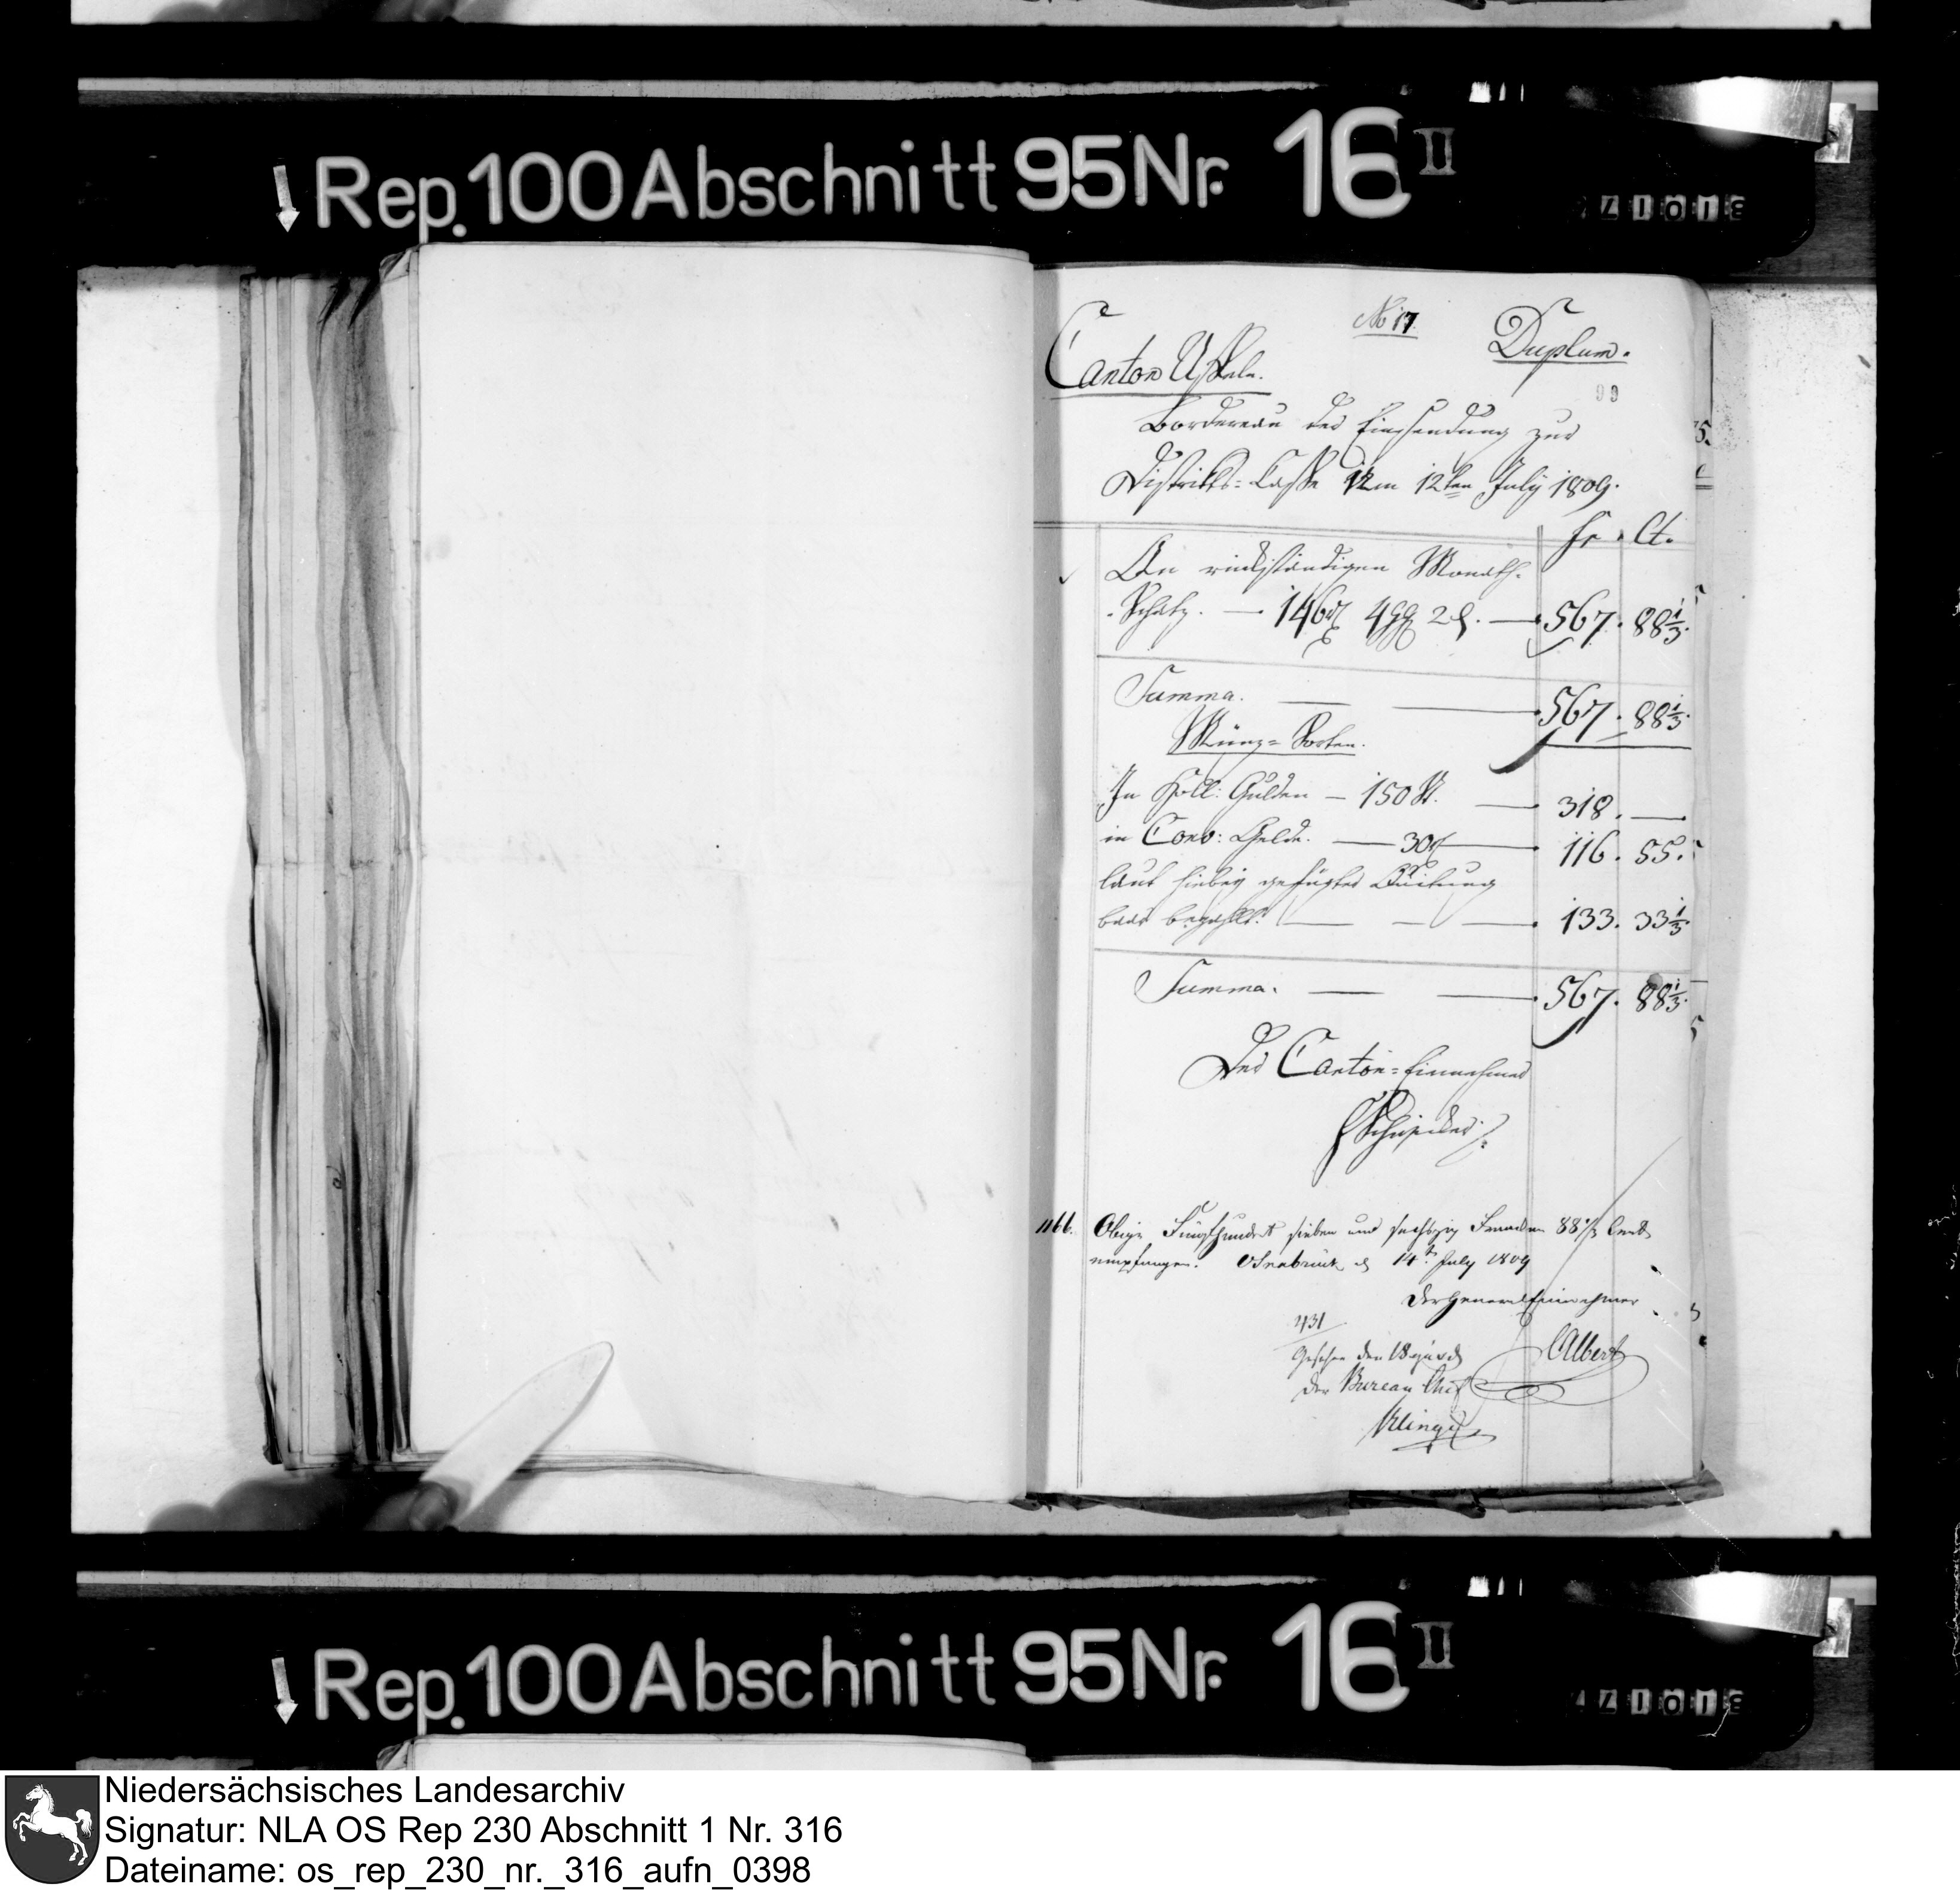 Rep. 100 Abschnitt 95 Nr. 16 II
No 17.
Duplum.
Canton Uffeln.
99
Bordereau der Einsendung zur
Districts-Casse am 12ten July 1809.
fr. Ct.
An rückständigen Monath-
Schatz. — 146 rt 4 gg 2 d. — 567. 88 1/3.
Summa. — 567. 88 1/3.
Münz-Sorten.
In Holl: Gulden — 150 St. — 318. —
in Conv: Gelde. — 30 rt — 116. 55.
laut hiebey gefügter Quitung
baar bezahlt. — 133. 33 1/3
Summa. — 567. 88 1/3.
Der Canton-Einnehmer
1166. Obige Fünfhundert sieben und sechszig Franken 88 1/3 Cent
empfangen. Osnabrück d 14t July 1809
Der General Einnehmer
431
CAlbert
Gesehen den 18
Der Bureau Chef
Rep. 100 Abschnitt 95 Nr. 16 II
Niedersächsisches Landesarchiv
Signatur: NLA OS Rep 230 Abschnitt 1 Nr. 316
Dateiname: os_rep_230_nr._316_aufn_0398